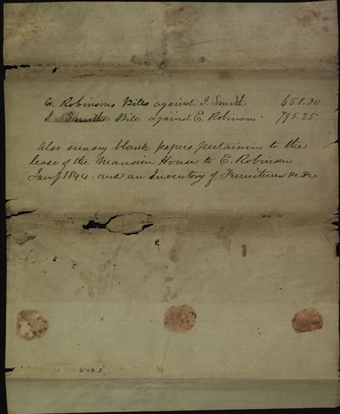 E. Robinsons Bills against J. Smith 658.30
J Smiths Bills against E. Robinson 795.25
Also sundry blank papers pertaining to the
lease of the Mansion House to E. Robinson
Jany 1844 and an Inventory of Furnitures &c &c